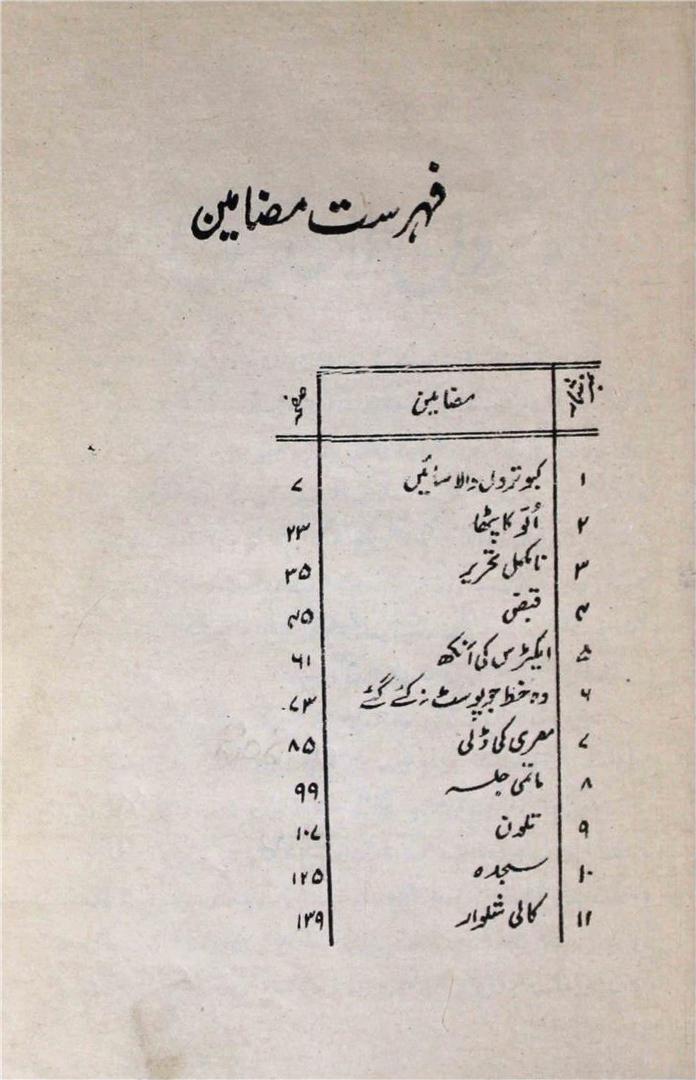 فہرست مضامین
نمبر شمار مضامین صفحہ
۱ کبوتروں والا سائیں ۷
۲ اُلّو کا پٹھا ۲۳
۳ نامکمل تحریر ۳۵
۴ قبض ۴۵
۵ ایکٹرس کی آنکھ ۶۱
۶ وہ خط جو پوسٹ نہ کئے گئے ۷۳
۷ مصری کی ڈلی ۸۵
۸ ماتمی جلسہ ۹۹
۹ تلون ۱۰۷
۱۰ سجدہ ۱۲۵
۱۱ کالی شلوار ۱۳۹